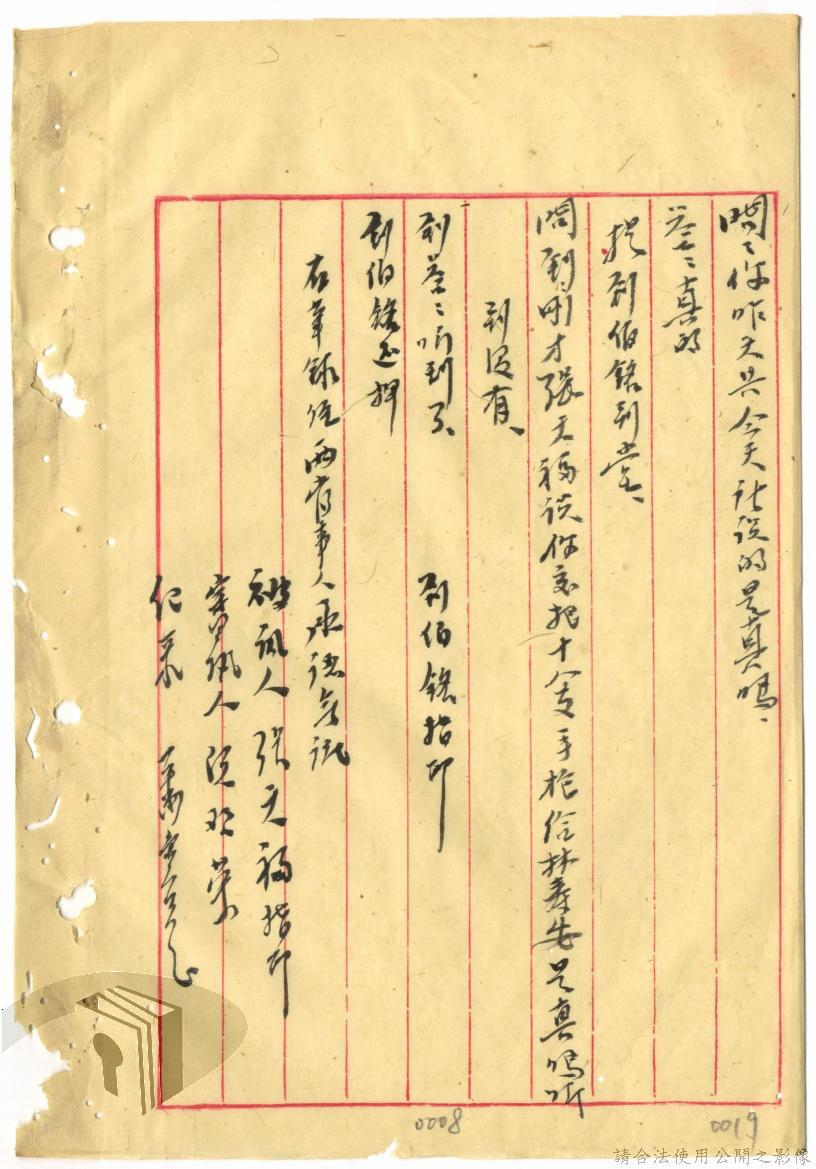 問：你昨天與今天所說的是真嗎、
答：真的
提劉伯銘到堂、
問劉：剛才張天福說你交把十八支手槍給林壽安是真嗎听
到沒有、
劉答：听到了、
劉伯銘還押
劉伯銘指印
右筆錄經兩當事人承認無訛
被訊人 張天福 指印
審訊人 洪
紀錄 蕭
0008
0019
請合法使用公開之影像